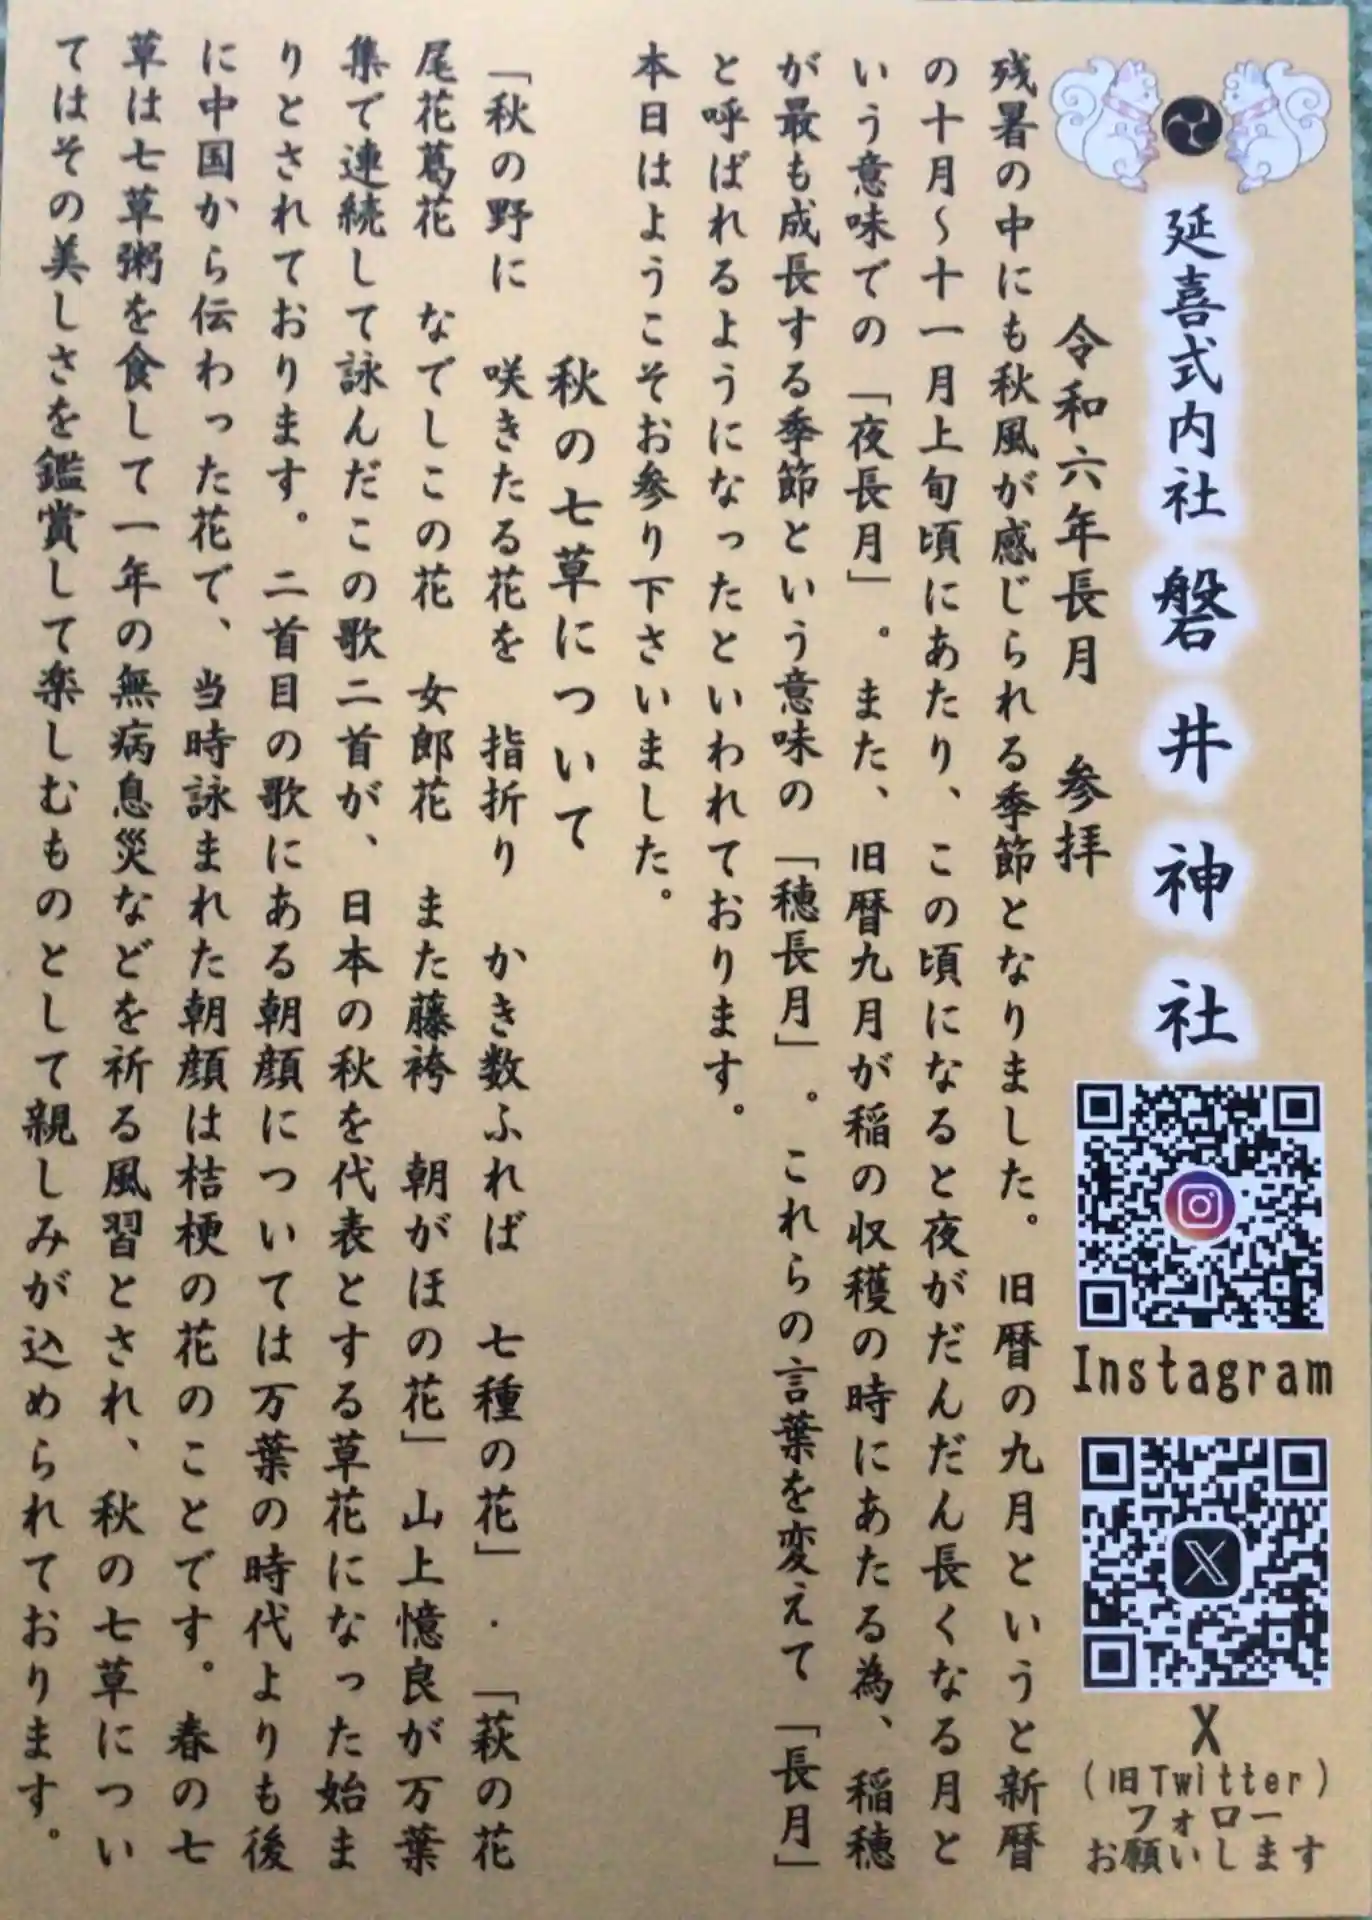 延喜式内社 磐井神社
令和六年長月 参拝
残暑の中にも秋風が感じられる季節となりました。旧暦の九月というと新暦
の十月～十一月上旬頃にあたり、この頃になると夜がだんだん長くなる月と
いう意味での「夜長月」。また、旧暦九月が稲の収穫の時にあたる為、稲穂
が最も成長する季節という意味の「穂長月」。これらの言葉を変えて「長月」
と呼ばれるようになったといわれております。
本日はようこそお参り下さいました。
秋の七草について
「秋の野に 咲きたる花を 指折り かき数ふれば 七種の花」・「萩の花
尾花葛花 なでしこの花 女郎花 また藤袴 朝がほの花」山上憶良が万葉
集で連続して詠んだこの歌二首が、日本の秋を代表とする草花になった始ま
りとされております。二首目の歌にある朝顔については万葉の時代よりも後
に中国から伝わった花で、当時詠まれた朝顔は桔梗の花のことです。春の七
草は七草粥を食して一年の無病息災などを祈る風習とされ、秋の七草につい
てはその美しさを鑑賞して楽しむものとして親しみが込められております。
Instagram
X
（旧Twitter）
フォロー
お願いします